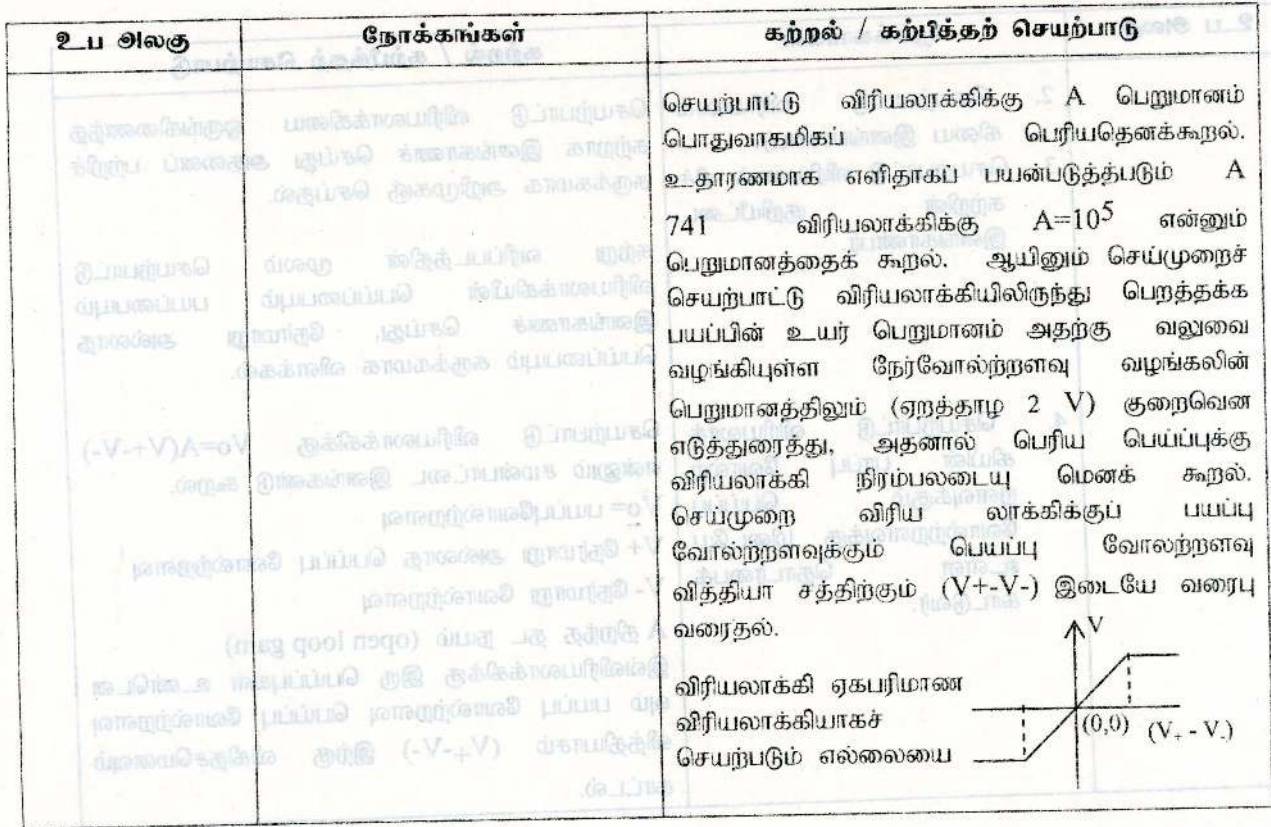 உப அலகு நோக்கங்கள் கற்றல் / கற்பித்தற் செயற்பாடு
செயற்பாட்டு விரியலாக்கிக்கு A பெறுமானம்
பொதுவாகமிகப் பெரியதெனக்கூறல்.
உதாரணமாக எளிதாகப் பயன்படுத்தபடும் A
741 விரியலாக்கிக்கு A=10⁵ என்னும்
பெறுமானத்தைக் கூறல். ஆயினும் செய்முறைச்
செயற்பாட்டு விரியலாக்கியிலிருந்து பெறத்தக்க
பயப்பின் உயர் பெறுமானம் அதற்கு வலுவை
வழங்கியுள்ள நேர்வோல்ற்றளவு வழங்கலின்
பெறுமானத்திலும் (ஏறத்தாழ 2 V) குறைவென
எடுத்துரைத்து, அதனால் பெரிய பெய்ப்புக்கு
விரியலாக்கி நிரம்பலடையு மெனக் கூறல்.
செய்முறை விரிய லாக்கிக்குப் பயப்பு
வோல்ற்றளவுக்கும் பெயப்பு வோலற்றளவு
வித்தியா சத்திற்கும் (V+-V-) இடையே வரைபு
வரைதல்.
V
விரியலாக்கி ஏகபரிமாண
விரியலாக்கியாகச்
செயற்படும் எல்லையை
(0,0) (V₊ - V₋)